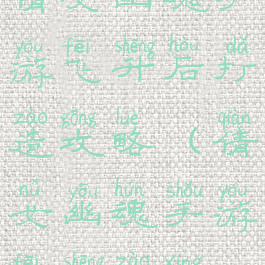 yóu fēi shēng hòu dǎ
游飞升后打
zào gōng lüè qiàn
造攻略（倩
nǚ yōu hún shǒu yóu
女幽魂手游
fēi shēng zào xíng